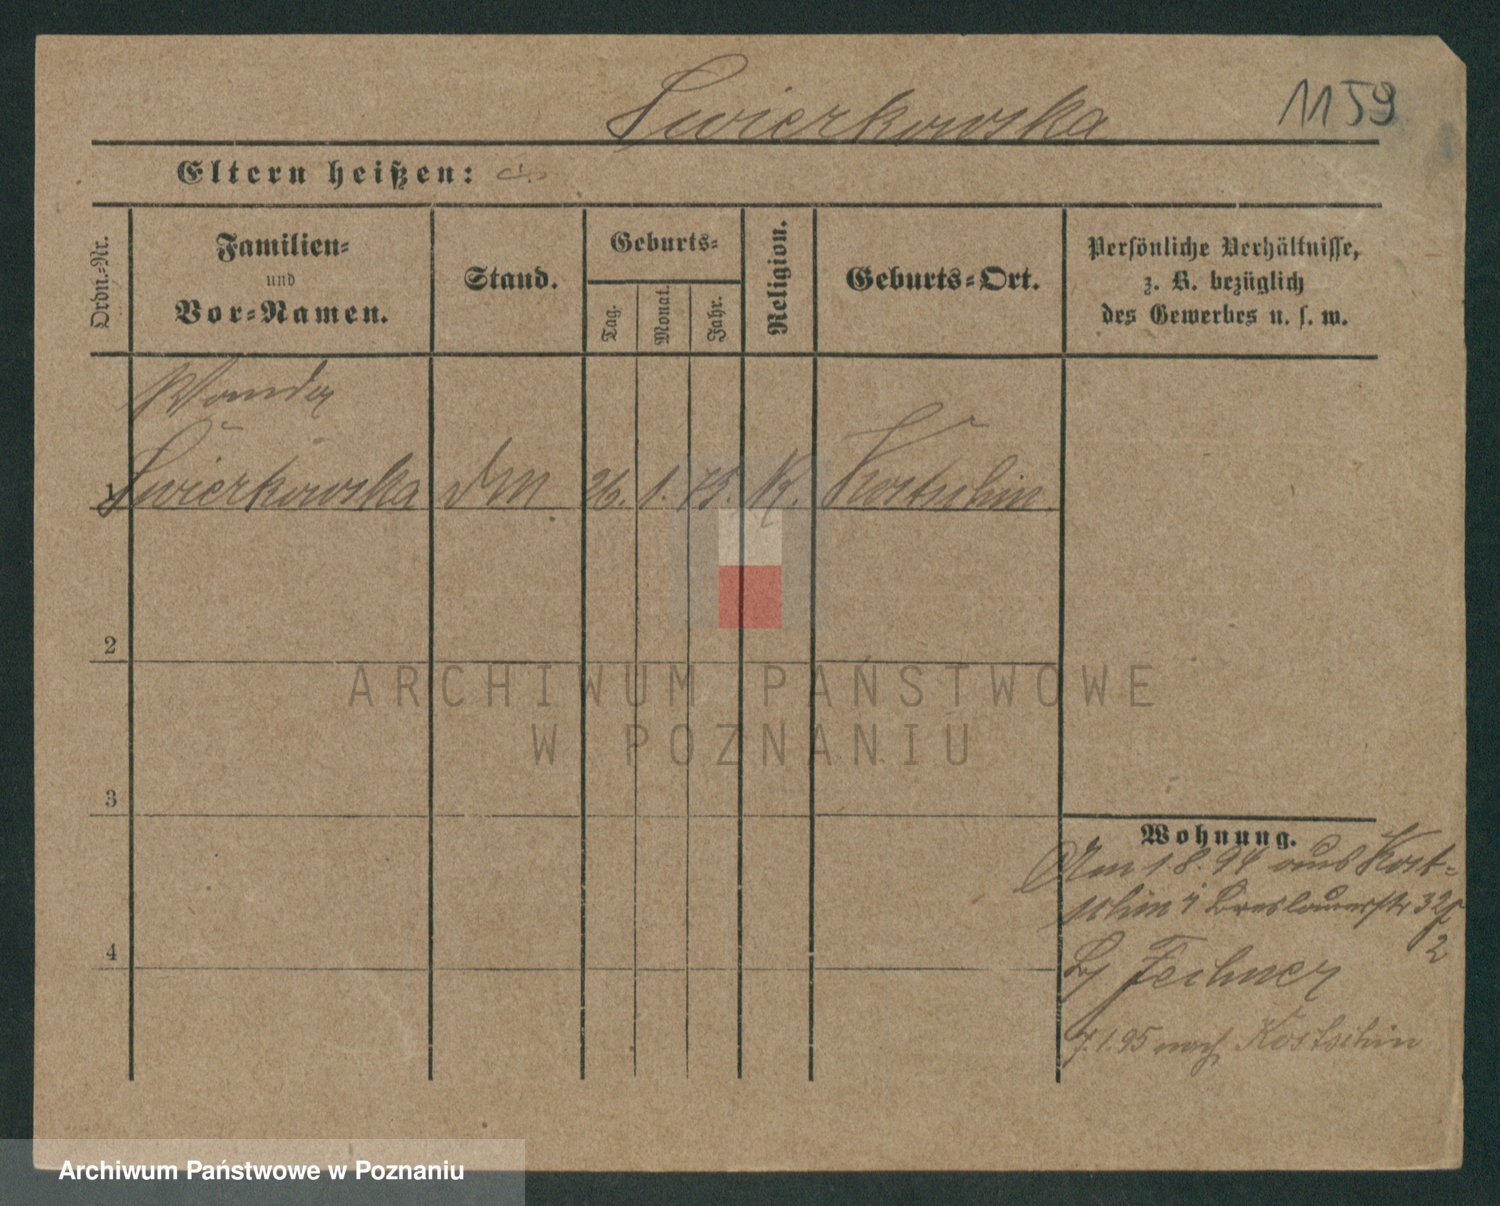 Swierkowska
1159
Eltern heißen:
Ordn.-Nr.
Familien-
und
Vor-Namen.
Stand.
Geburts-
Tag.
Monat.
Jahr.
Religion.
Geburts-Ort.
Persönliche Verhältnisse,
z. B. bezüglich
des Gewerbes u. s. w.
Wanda
1 Swierkowska 26. 1. 75. K. Kostschin
2
3
4
Wohnung.
Am 1.8.94 aus Kost-
schin Breslauerstr 32
2
Fechner
7.1.95 nach Kostschin
ARCHIWUM PAŃSTWOWE
W POZNANIU
Archiwum Państwowe w Poznaniu